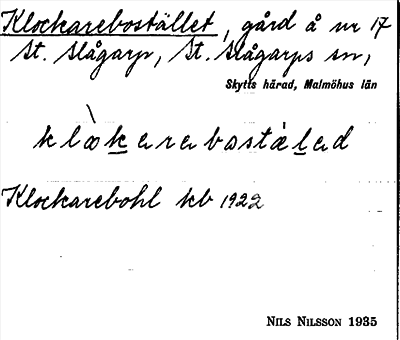 Klockarebostället, gård å nr 17
St. Slågarp, St. Slågarps sn,
Skytts härad, Malmöhus län
klòkarabostálad
Klockarebohl kb 1922
NILS NILSSON 1935